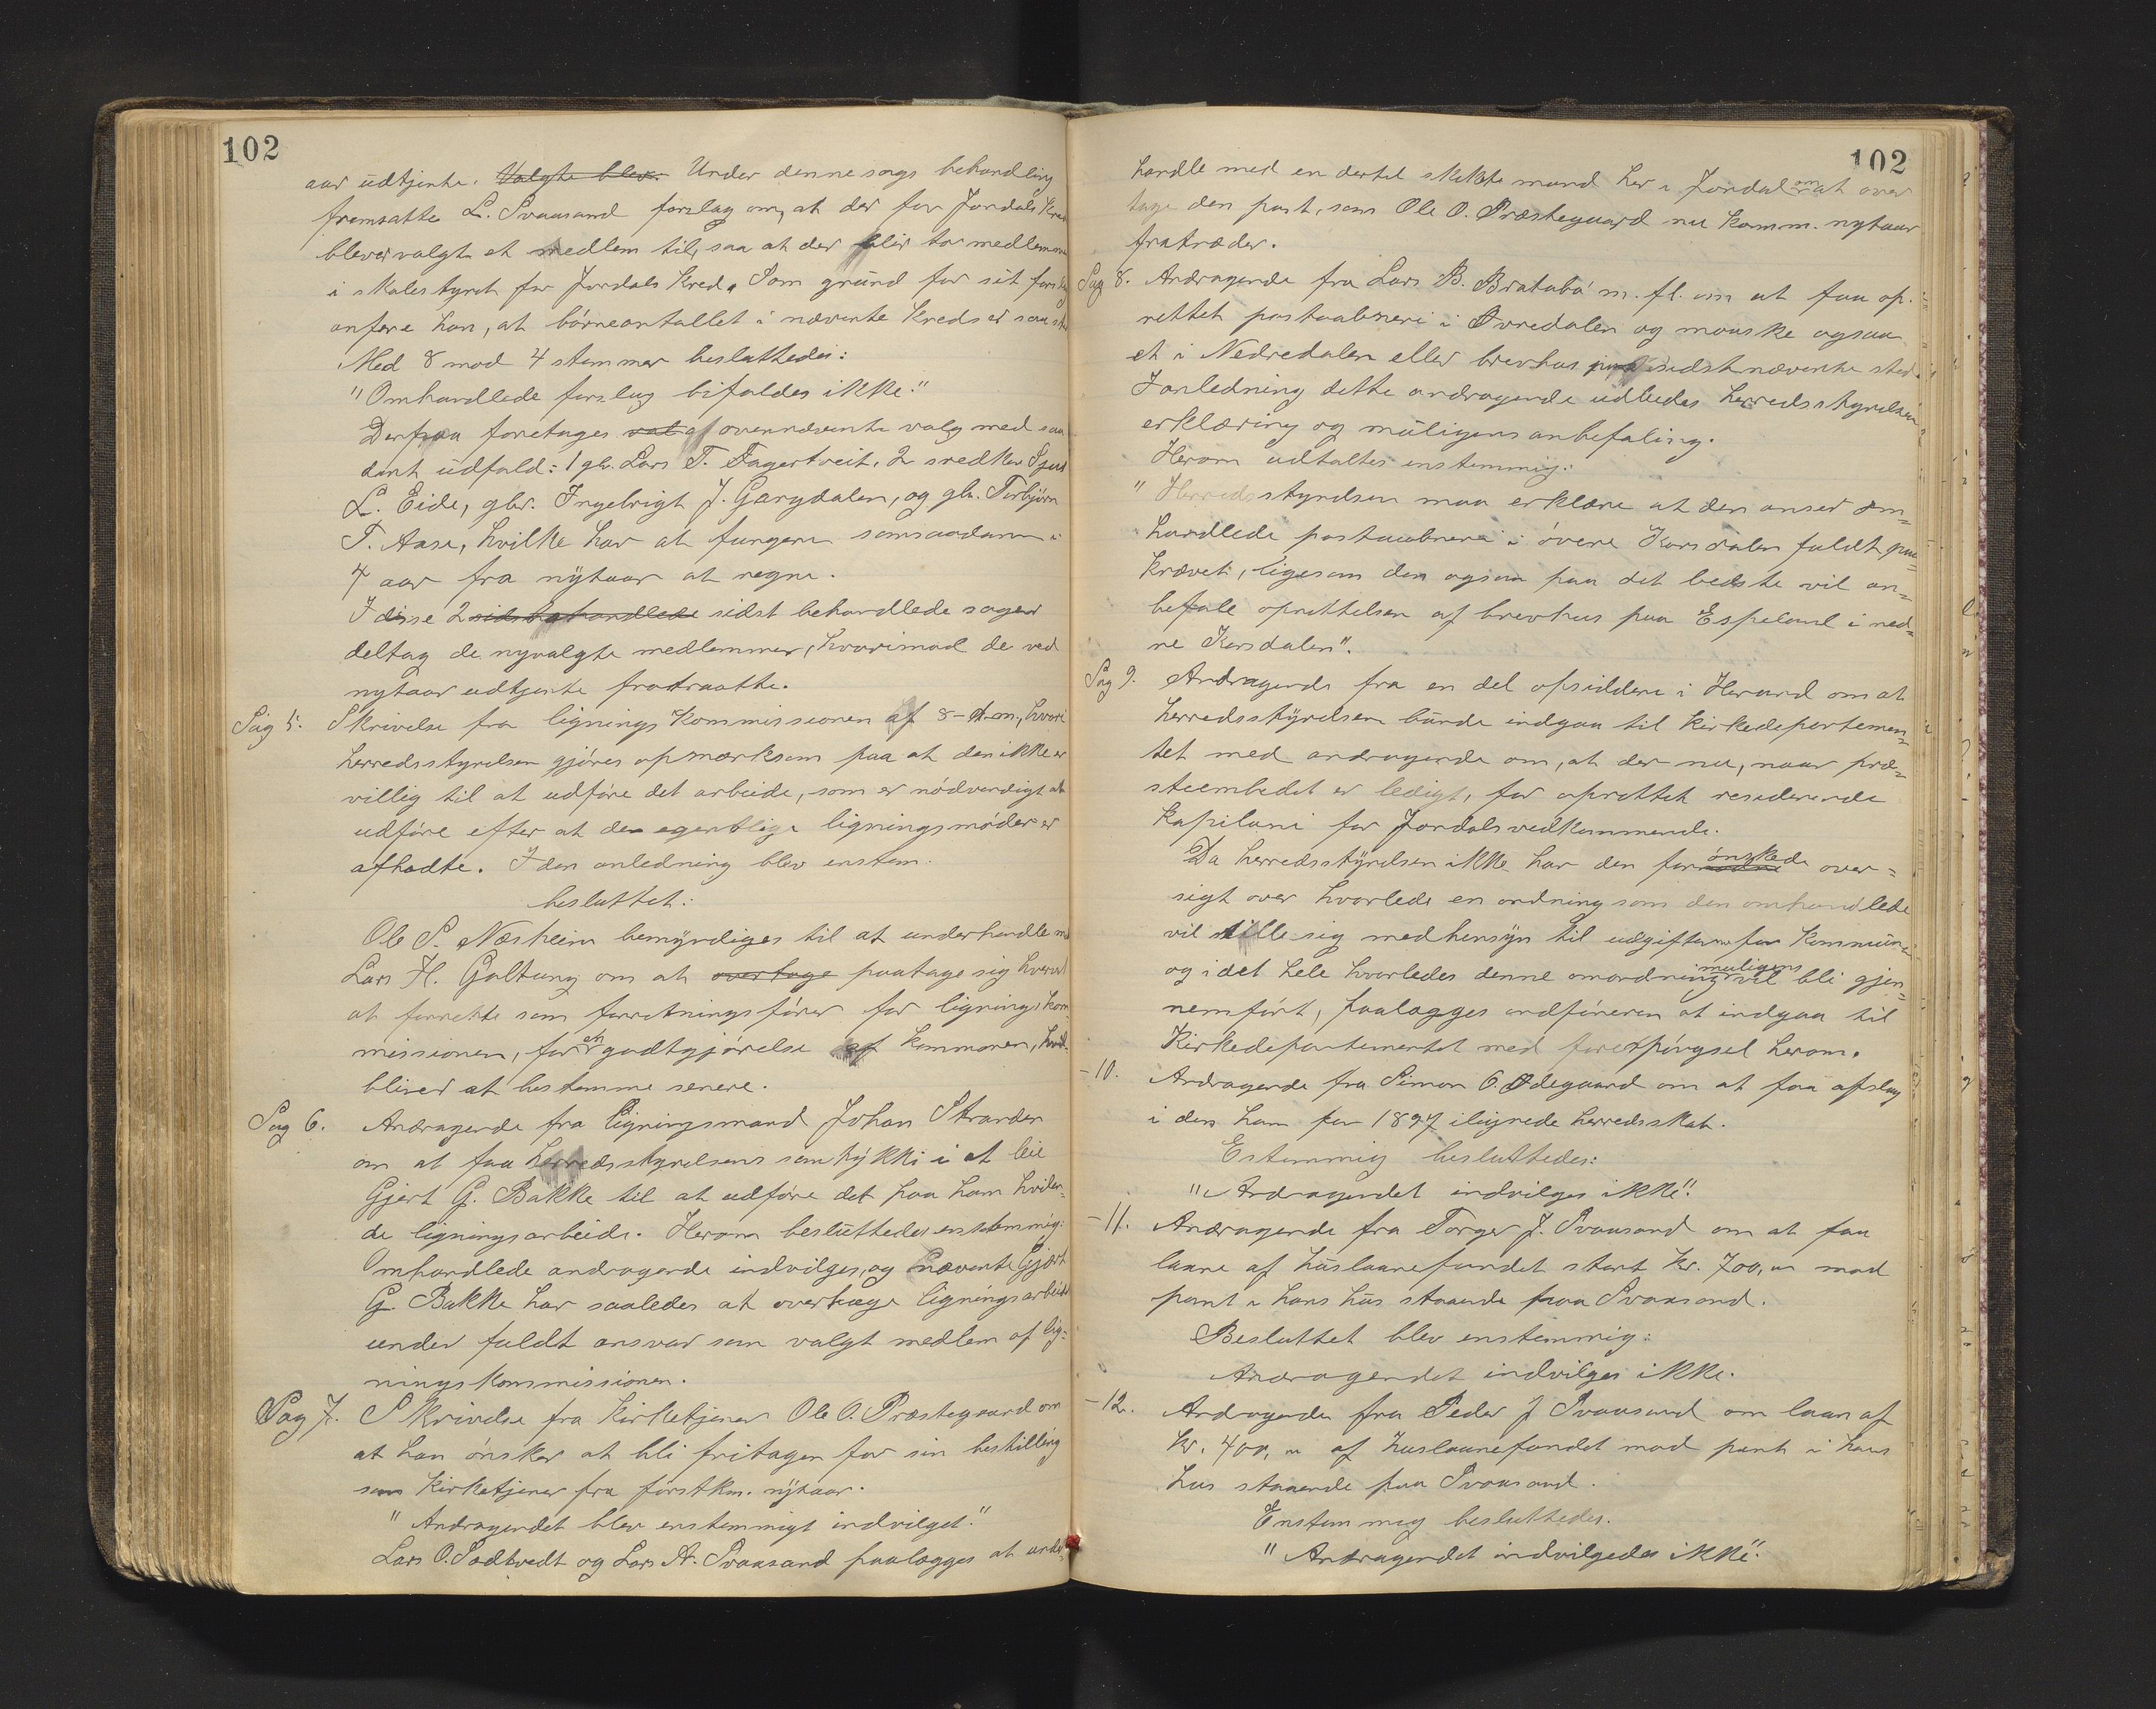 102
aar udtjente. Valgte blev. Under denne sags behandling
fremsatte L. Svaasand forslag om, at der for Jondals Kreds
blever valgt et medlem til, saa at der blir to medlemmer
i skolestyret for Jondals Kreds. Som grund for sit forslag
anføre han, at børneantallet i nævnte Kreds er saa
Med 8 mod 4 stemmer besluttedes:
"Omhandlede forslag bifaldes ikke."
Derpaa foretages val af ovennævnte valg med saa
dant udfald: 1 gbr. Lars T. Fagertveit, 2 snedker Sjur
L. Eide, gbr. Ingebrigt J. Gangdalen, og gbr. Torbjörn
T. Aase, hvilke har at fungere somsaadanne i
4 aar fra nytaar at regne.
I disse 2 sidst behandlede sidst behandlede sager
deltog de nyvalgte medlemmer, hvorimod de ved
nytaar udtjente fratraatte.
Sag 5. Skrivelse fra ligningskommissionen af 8-d.m., hvori
herredsstyrelsen gjøres opmærksom paa at den ikke er
villig til at udføre det arbeide, som er nødvendigt at
udføre efter at de egentlige ligningsmøder er
afholdte. I den anledning blev enstem.
besluttet:
Ole S. Næsheim bemyndiges til at underhandle m
Lars H. Galtung om at overtage paatage sig hvervet
at forrette som forretningsfører for ligningskom
missionen, for en godtgjørelse af kommunen, hvil
bliver at bestemme senere.
Sag 6. Andragende fra ligningsmand Johan Stranden
om at faa herredsstyrelsens samtykke i at leie
Gjert G. Bakke til at udføre det paa ham hvilen-
de ligningsarbeide. Herom besluttedes enstemmig:
Omhandlede andragende indvilges, og nævnte Gjert
G. Bakke har saaledes at overtage ligningsarbeidet
under fuldt ansvar som valgt medlem af lig-
ningskommissionen.
Sag 7. Skrivelse fra Kirketjener Ole O. Præstegaard om
at han ønsker at bli fritagen for sin bestilling
som Kirketjener fra førstkm. nytaar.
"Andragendet blev enstemmigt indvilget."
Lars O. Sodtvedt og Lars A. Svaasand paalægges at under-
102
handle med en dertil skikket mand her i Jondal om at over
tage den post, som Ole O. Præstegaard nu komm. nytaar
fratræder.
Sag 8. Andragende fra Lars B. Bratabø m. fl. om at faa op-
rettet postaabneri i Øvredalen og maaske ogsaa
et i Nedredalen eller brevhus paa sidstnævnte sted.
I anledning dette andragende udbedes herredsstyrelsens
erklæring og muligens anbefaling.
Herom udtaltes enstemmig:
"Herredsstyrelsen maa erklære at den anser om-
handlede postaabneri i øvere Korsdalen fuldt paa-
krævet, ligesom den ogsaa paa det bedste vil an-
befale oprettelsen af brevhus paa Espeland i ned-
re Korsdalen".
Sag 9. Andragende fra en del opsiddere i Herand om at
herredsstyrelsen burde indgaa til kirkedepartemen-
tet med andragende om, at der nu, naar præ-
steembedet er ledigt, for oprettet residerende
kapilani for Jondals vedkommende.
Da herredsstyrelsen ikke har den for ønskede over-
sigt over hvorledes en ordning som den omhandlede
vil stille sig medhensyn til udgifterne for Kommune
og i det hele hvorledes denne omordning muligens vil bli gjen-
nemført, paalægges ordføreren at indgaa til
Kirkedepartementet med forespørgsel herom.
-10. Andragende fra Simon O. Ødegaard om at faa afslag
i den ham for 1897 ilignede herredsskat.
Estemmig besluttedes:
"Andragendet indvilges ikke".
-11. Andragende fra Torger J. Svaasand om at faa
laane af huslaanefondet stort kr. 700,00 mod
pant i hans hus staaende paa Svaasand.
Besluttet blev enstemmig:
Andragendet indvilges ikke.
-12. Andragende fra Peder J Svaasand om laan af
Kr. 400,00 af huslaanefondet mod pant i hans
hus staaende paa Svaasand.
Enstemmig besluttedes.
"Andragendet indvilgedes ikke".